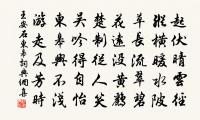 起伏晴雲徑
縱橫暖水陂
草長流翠碧
花遠沒黃鸝
楚制從人笑
吳吟得自怡
東皋興不淺
游走及芳時
王安石東皋